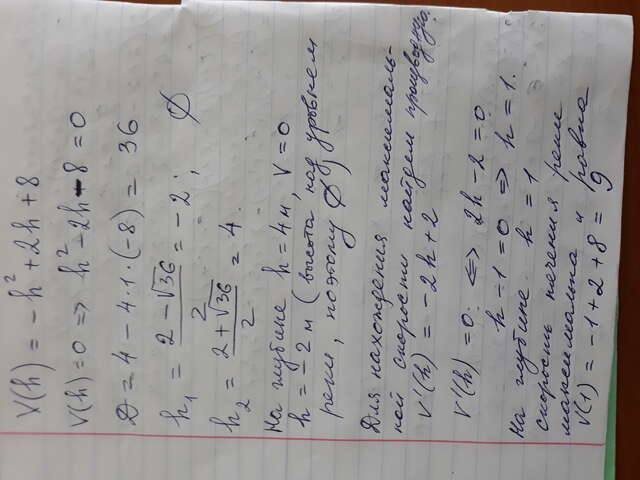 V(h) = -h² + 2h + 8
V(h) = 0 => h² - 2h - 8 = 0
D = 4 - 4·1·(-8) = 36
h₁ = (2 - √36)/2 = -2; ∅
h₂ = (2 + √36)/2 = 4.
На глубине h = 4м, V = 0
h = -2 м (высота над уровнем
реки, поэтому ∅)
Для нахождения максималь-
ной скорости найдем производную.
V'(h) = -2h + 2
V'(h) = 0: <=> 2h - 2 = 0
h - 1 = 0 => h = 1.
На глубине h = 1
скорость течения реки
максимальна и равна
V(1) = -1 + 2 + 8 = 9